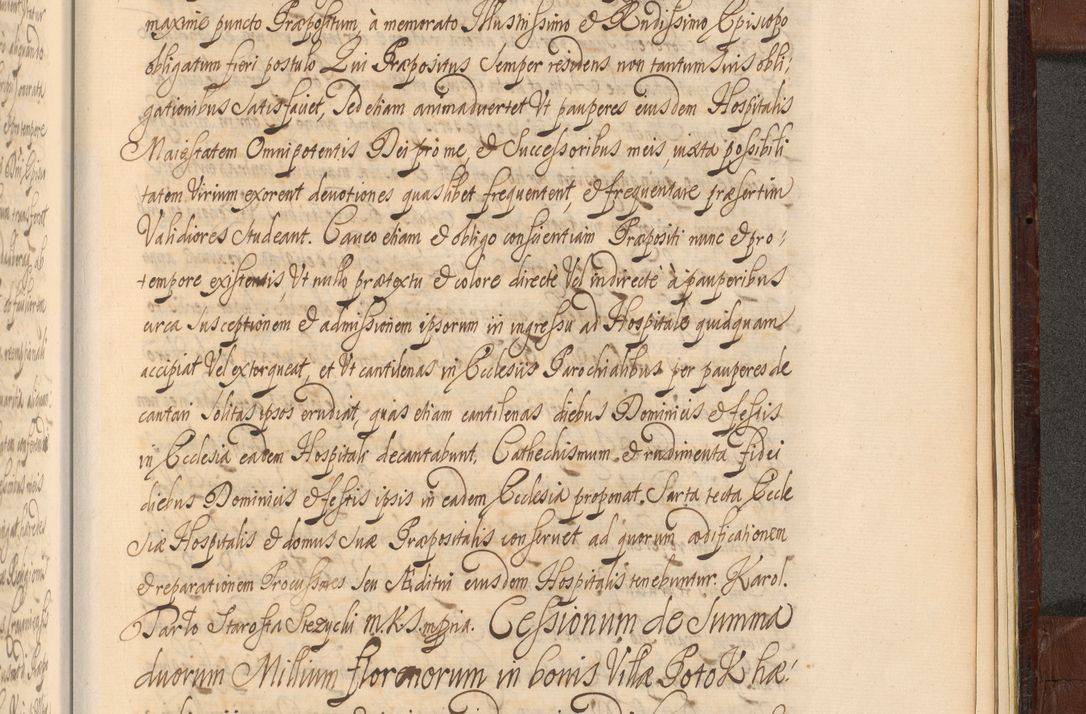 maxime puncto Præpositum, à memorato Illustrissimo & Rndissimo Episcopo
obligatum fieri postulo Qui Præpositus Semper residens non tantum Suis obli:
gationibus Satisfaciet, Sed etiam animadvertet Ut pauperes eiusdem Hospitalis
Maiestatem Omnipotentis Dei pro me, & Successoribus meis, iuxta possibili
tatem Virium exorent devotiones quaslibet frequentent & frequentare præsertim
Validiores Studeant. Caveo etiam & obligo conscientiam Præpositi nunc & pro:
tempore existentis, Ut nullo prætextu & colore directè Vel indirectè à pauperibus
circa Susceptionem & admissionem ipsorum in ingressu ad Hospitale quidquam
accipiat Vel extorqueat, et Ut cantilenas in Ecclesiis Parochialibus per pauperes de
cantari Solitas ipsos erudiat, quas etiam cantilenas diebus Dominicis & festis
in Ecclesia eadem Hospitali decantabunt, Cathechismum & rudimenta fidei
diebus Dominicis & festis ipsis in eadem Ecclesia proponat. Sarta tecta Eccle
siæ Hospitalis & domus Suæ Præpositalis conservet ad quorum ædificationem
& reparationem Seu Æditui eiusdem Hospitalis tenebuntur. Karol.
Tarło Starosta Stezycki M.K.S. mpria. Cessionum de Summa
duorum Millium florenorum in bonis Villæ Potok hæ: